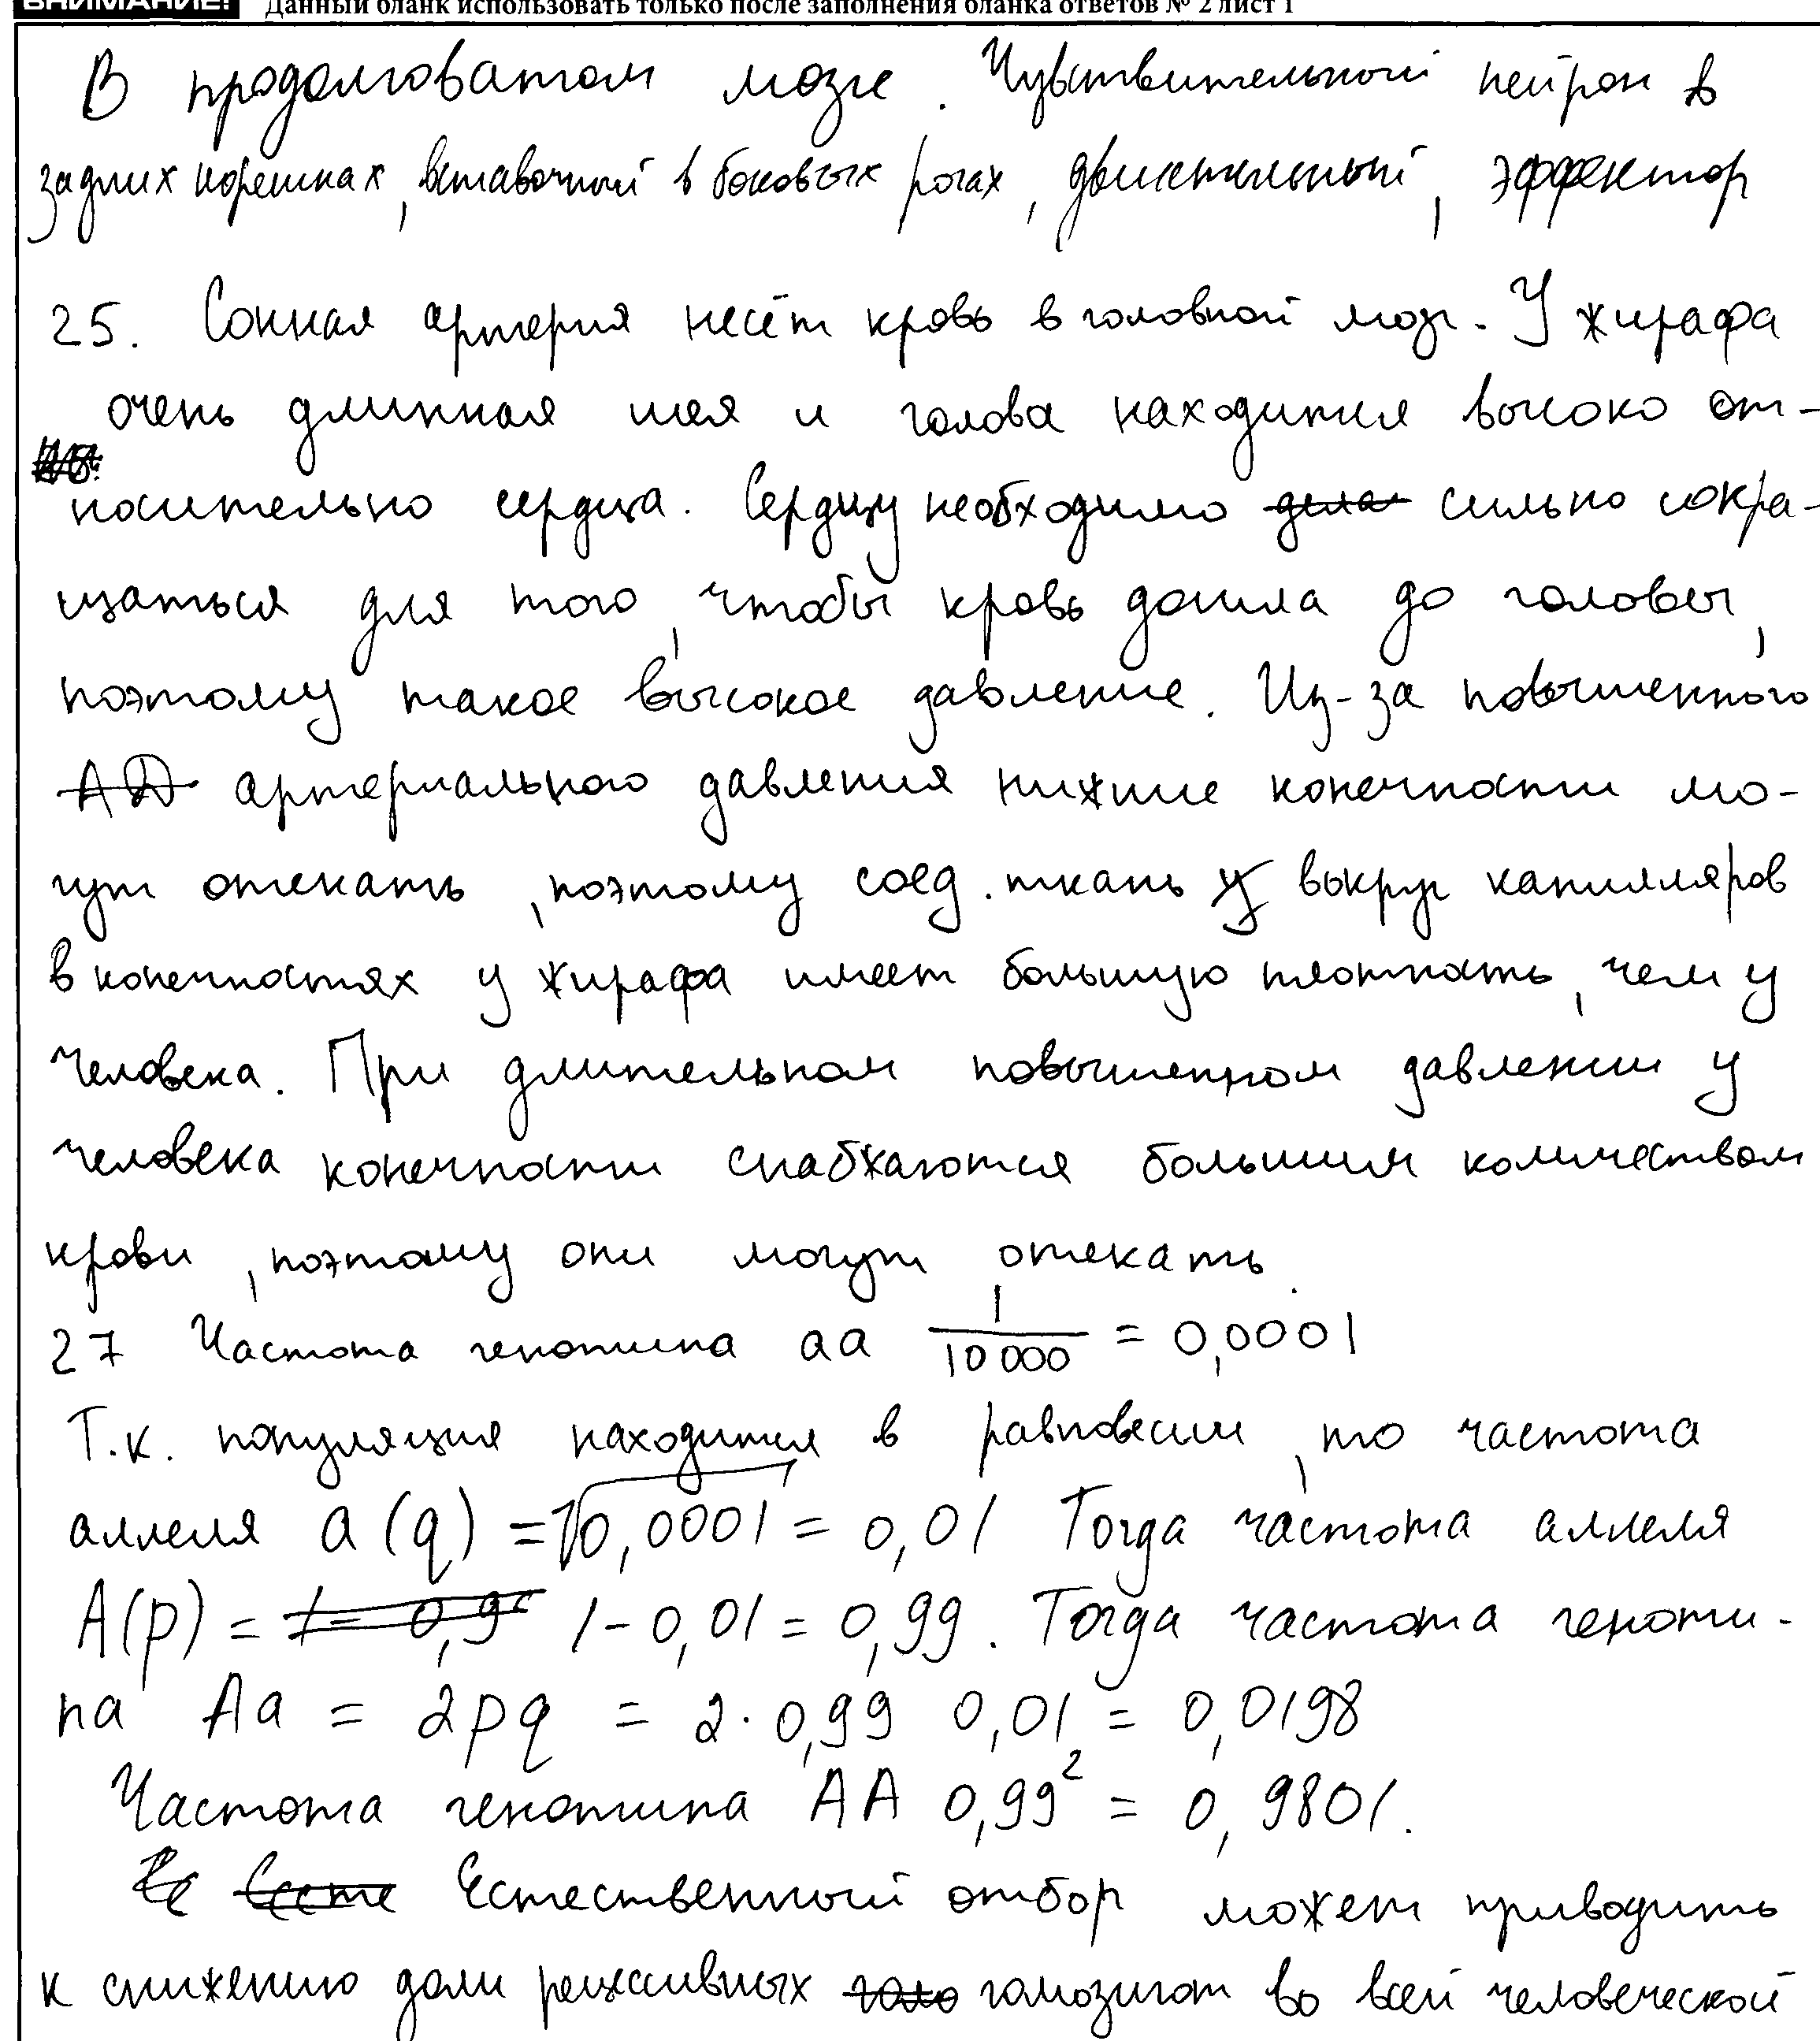 ВНИМАНИЕ! Данный бланк использовать только после заполнения бланка ответов № 2 лист 1
В продолговатом мозге. Чувствительный нейрон в
задних корешках, вставочный в боковых рогах, двигательный, эффектор
25. Сонная артерия несёт кровь в головной мозг. У жирафа
очень длинная шея и голова находится высоко от-
носительно сердца. Сердцу необходимо дела сильно сокра-
щаться для того, чтобы кровь дошла до головы,
поэтому такое высокое давление. Из-за повышенного
АД артериального давления нижние конечности мо-
гут отекать, поэтому соед. ткань у вокруг капилляров
в конечностях у жирафа имеет большую плотность, чем у
человека. При длительном повышенном давлении у
человека конечности снабжаются большим количеством
крови, поэтому они могут отекать.
27 Частота генотипа aa 1/10 000 = 0,0001
Т.к. популяция находится в равновесии, то частота
аллеля a (q) = √0,0001 = 0,01 Тогда частота аллеля
A(p) = 1 - 0,9 1 - 0,01 = 0,99. Тогда частота геноти-
па Aa = 2pq = 2 · 0,99 0,01 = 0,0198
Частота генотипа AA 0,99² = 0,9801.
Естественный отбор может приводить
к снижению доли рецессивных гомозигот во всей человеческой